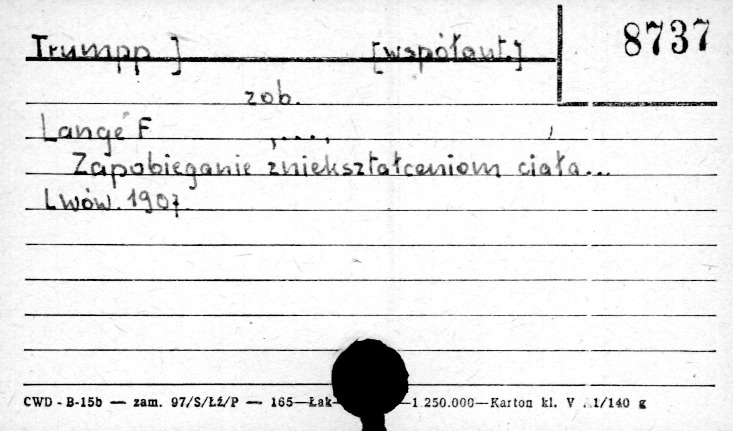 Trumpp J [współaut.]
8737
zob.
Lange F
Zapobieganie zniekształceniom ciała...
Lwów. 1907
CWD - B-15b — zam. 97/S/Łź/P — 165—Łak- —1 250.000—Karton kl. V 1/140 g